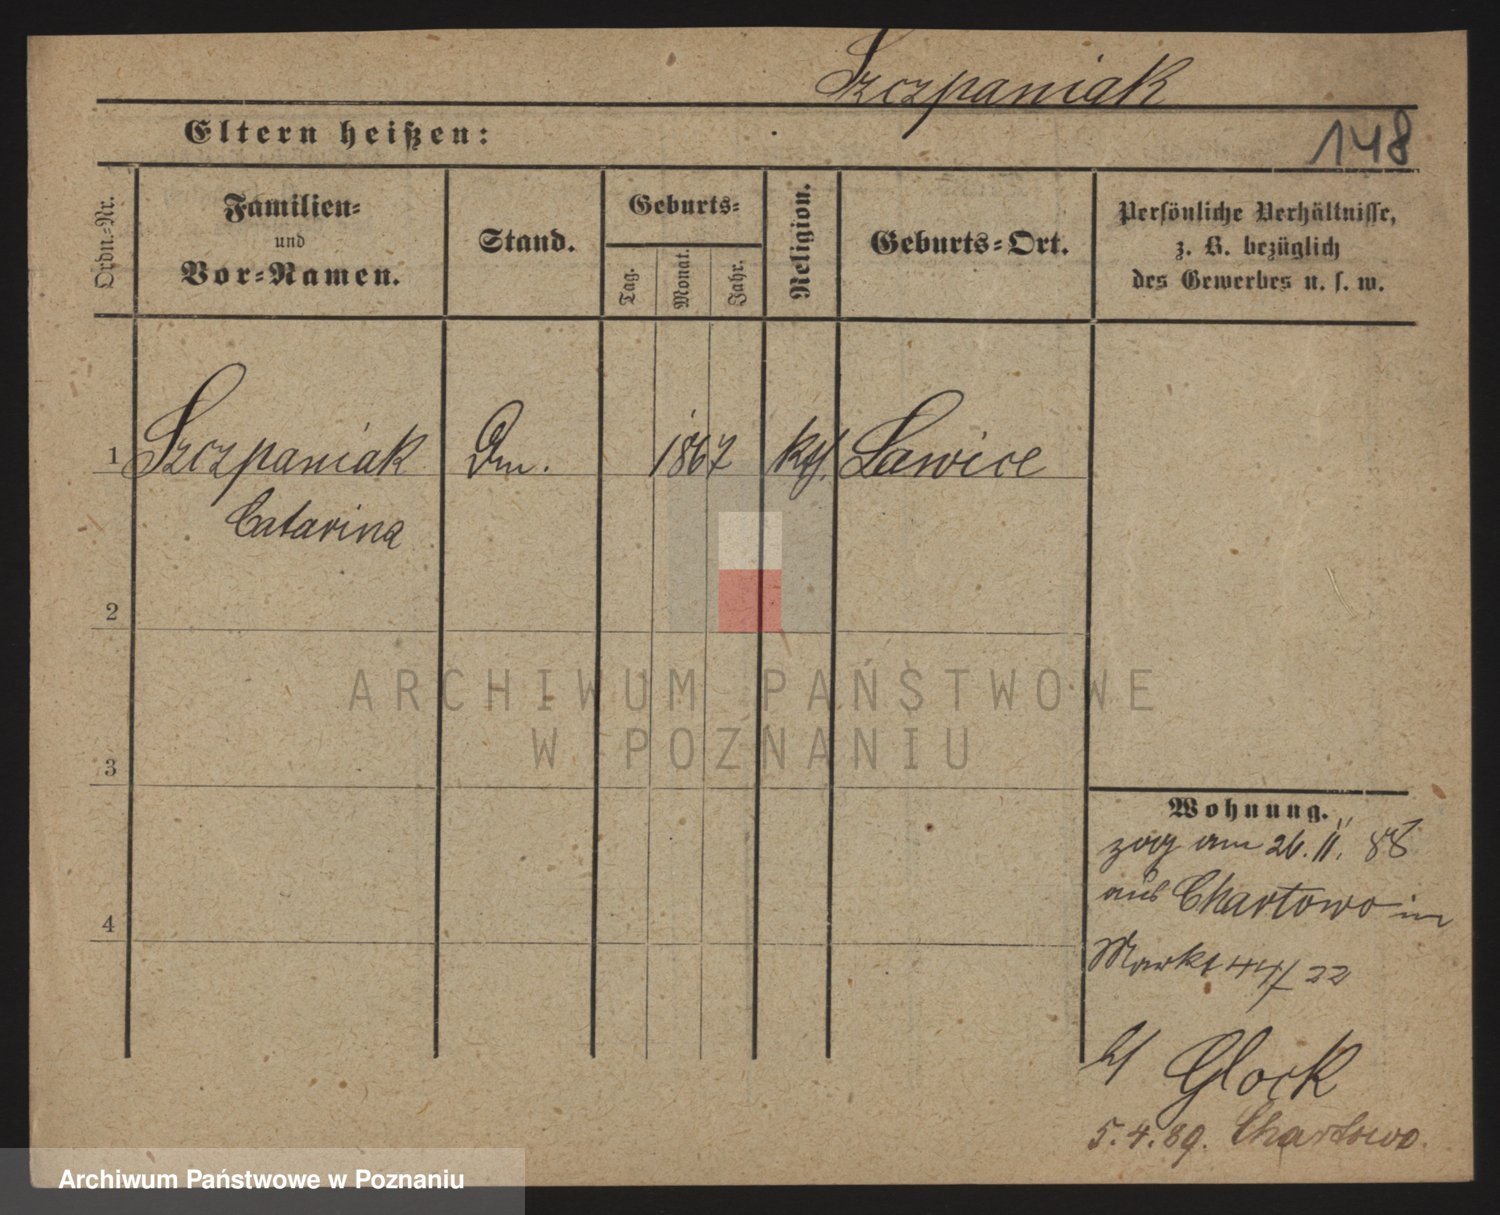 Szczpaniak
Eltern heißen:
148
Ordn.-Nr.
Familien-
und
Vor-Namen.
Stand.
Geburts-
Tag.
Monat.
Jahr.
Religion.
Geburts-Ort.
Persönliche Verhältnisse,
z. B. bezüglich
des Gewerbes u. s. w.
1 Szczpaniak Dm. 1867 kth. Lawice
Catarina
2
3
4
ARCHIWUM PAŃSTWOWE
W POZNANIU
Wohnung.
zog am 26. 11. 88
aus Chartowo in
Markt 44/22
Glock
5.4.89. Chartowo.
Archiwum Państwowe w Poznaniu